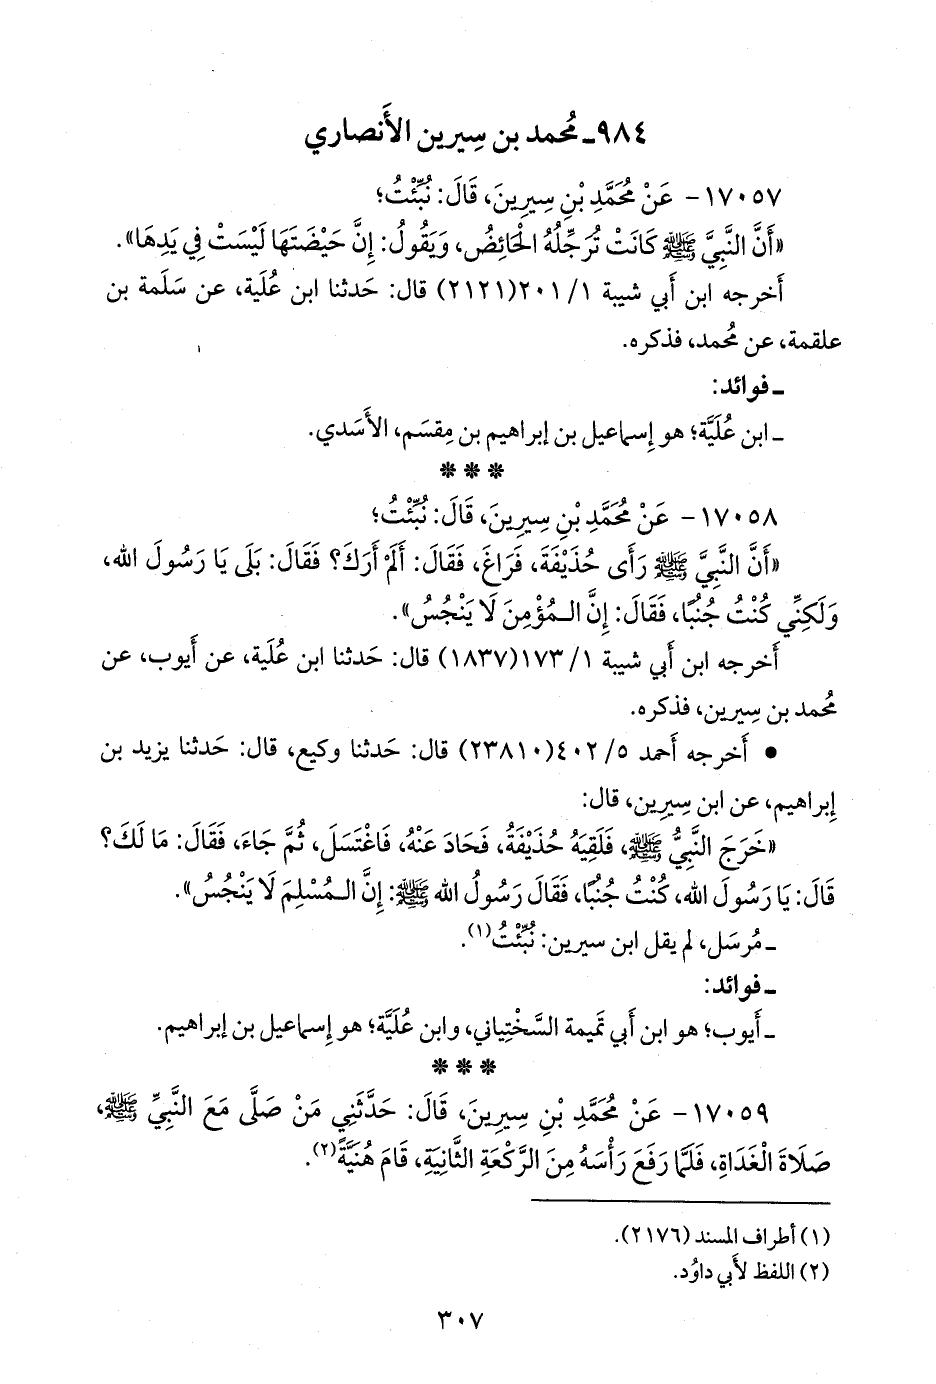 ٩٨٤ـ مُحمد بن سِيرين الأَنصاري
١٧٠٥٧- عَنْ مُحَمَّدِ بْنِ سِيرِينَ، قَالَ: نُبِّئْتُ؛
«أَنَّ النَّبِيَّ ﷺ كَانَتْ تُرَجِّلُهُ الْحَائِضُ، وَيَقُولُ: إِنَّ حَيْضَتَهَا لَيْسَتْ فِي يَدِهَا».
أَخرجه ابن أَبي شيبة ١/ ٢٠١(٢١٢١) قال: حَدثنا ابن عُلَية، عن سَلَمة بن
علقمة، عن مُحمد، فذكره.
ـ فوائد:
ـ ابن عُلَيَّة؛ هو إِسماعيل بن إِبراهيم بن مِقسَم، الأَسَدي.
***
١٧٠٥٨- عَنْ مُحَمَّدِ بْنِ سِيرِينَ، قَالَ: نُبِّئْتُ؛
«أَنَّ النَّبِيَّ ﷺ رَأَى حُذَيْفَةَ، فَرَاغَ، فَقَالَ: أَلَمْ أَرَكَ؟ فَقَالَ: بَلَى يَا رَسُولَ الله،
وَلَكِنِّي كُنْتُ جُنُبًا، فَقَالَ: إِنَّ الـمُؤْمِنَ لَا يَنْجُسُ».
أَخرجه ابن أَبي شيبة ١/ ١٧٣(١٨٣٧) قال: حَدثنا ابن عُلَية، عن أَيوب، عن
مُحمد بن سِيرين، فذكره.
• أَخرجه أَحمد ٥/ ٤٠٢(٢٣٨١٠) قال: حَدثنا وكيع، قال: حَدثنا يزيد بن
إِبراهيم، عن ابن سِيرين، قال:
«خَرَجَ النَّبِيُّ ﷺ، فَلَقِيَهُ حُذَيْفَةُ، فَحَادَ عَنْهُ، فَاغْتَسَلَ، ثُمَّ جَاءَ، فَقَالَ: مَا لَكَ؟
قَالَ: يَا رَسُولَ الله، كُنْتُ جُنُبًا، فَقَالَ رَسُولُ الله ﷺ: إِنَّ الـمُسْلِمَ لَا يَنْجُسُ».
ـ مُرسَل، لم يقل ابن سيرين: نُبِّئْتُ(١).
ـ فوائد:
ـ أَيوب؛ هو ابن أَبي تَميمة السَّخْتِياني، وابن عُلَيَّة؛ هو إِسماعيل بن إِبراهيم.
***
١٧٠٥٩- عَنْ مُحَمَّدِ بْنِ سِيرِينَ، قَالَ: حَدَّثَنِي مَنْ صَلَّى مَعَ النَّبِيِّ ﷺ،
صَلَاةَ الْغَدَاةِ، فَلَمَّا رَفَعَ رَأْسَهُ مِنَ الرَّكْعَةِ الثَّانِيَةِ، قَامَ هُنَيَّةً(٢).
(١) أطراف المسند (٢١٧٦).
(٢) اللفظ لأَبي داوُد.
٣٠٧